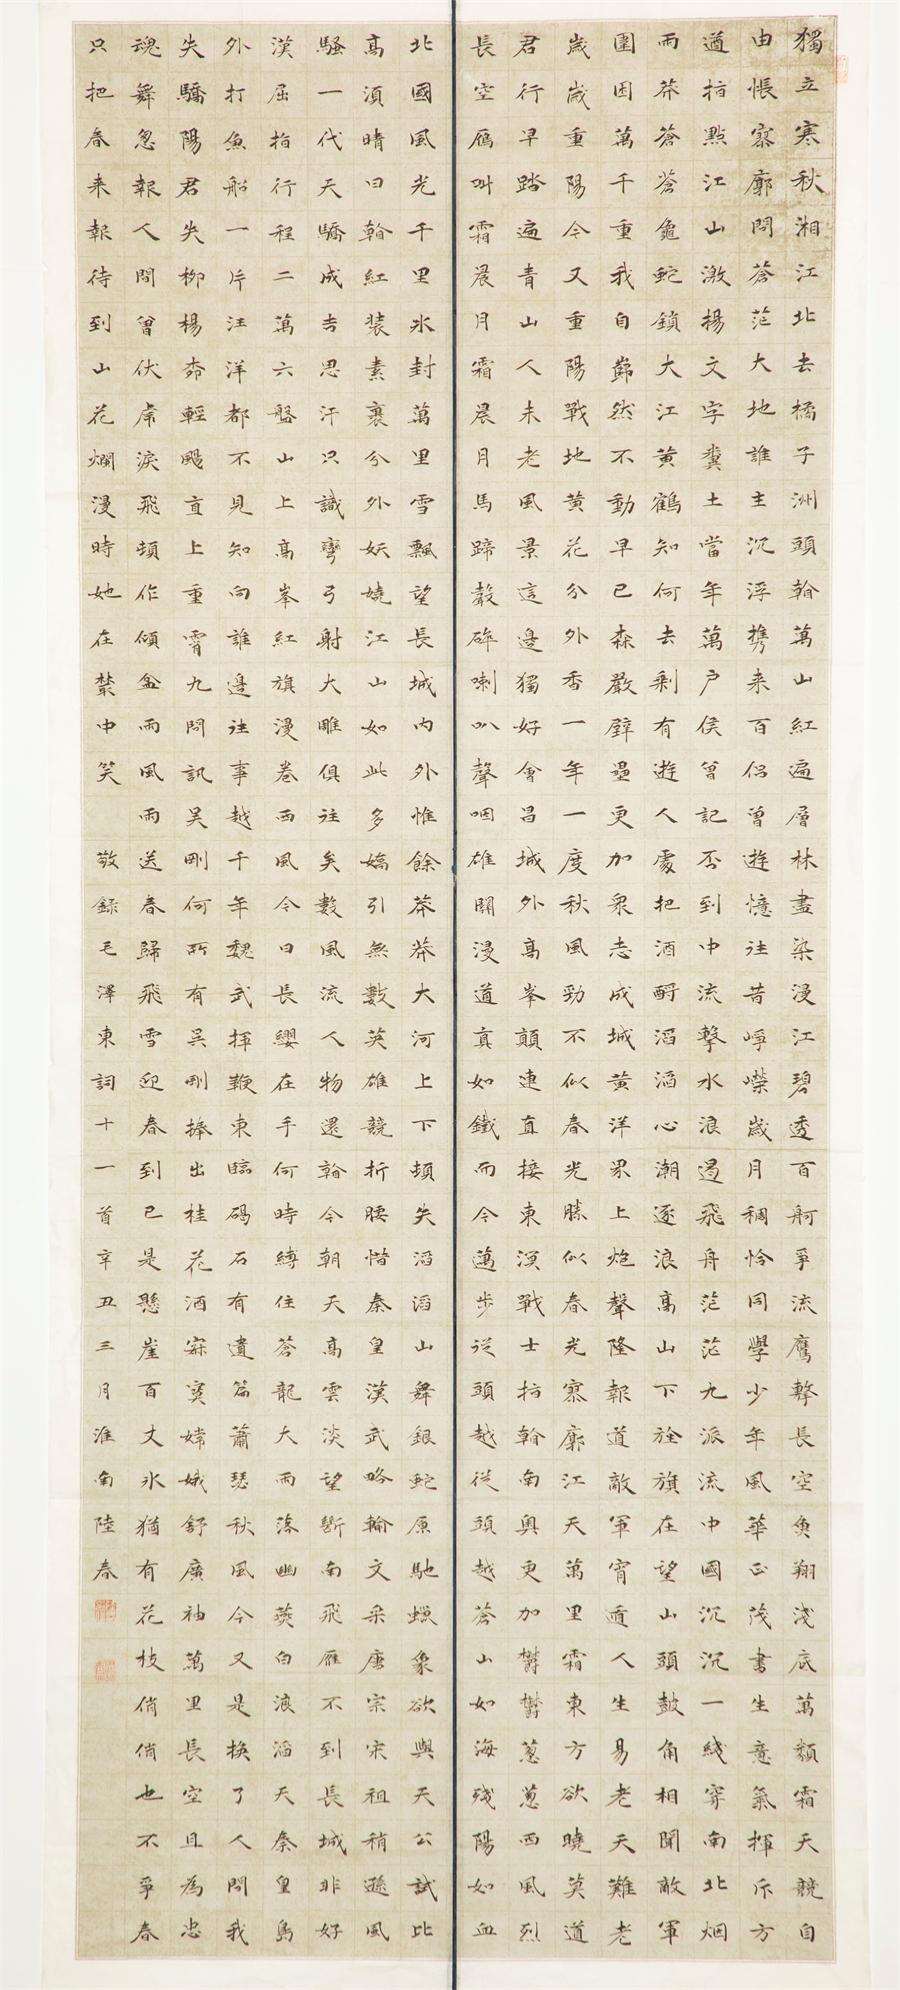 獨立寒秋湘江北去橘子洲頭看萬山紅遍層林盡染漫江碧透百舸爭流鷹擊長空魚翔淺底萬類霜天競自
由悵寥廓問蒼茫大地誰主沉浮攜来百侣曾遊憶往昔崢嶸歲月稠恰同學少年風華正茂書生意氣揮斥方
遒指點江山激揚文字糞土當年萬户侯曾記否到中流擊水浪遏飛舟茫茫九派流中國沉沉一綫穿南北烟
雨莽蒼蒼龜蛇鎖大江黄鶴知何去剩有遊人處把酒酹滔滔心潮逐浪高山下旌旗在望山頭鼓角相聞敵軍
圍困萬千重我自巋然不動早已森嚴壁壘更加衆志成城黄洋界上炮聲隆報道敵軍宵遁人生易老天難老
歲歲重陽今又重陽戰地黄花分外香一年一度秋風勁不似春光勝似春光寥廓江天萬里霜東方欲曉莫道
君行早踏遍青山人未老風景這邊獨好會昌城外高峯顛連直接東溟戰士指看南粤更加鬱鬱葱葱西風烈
長空雁叫霜晨月霜晨月馬蹄聲碎喇叭聲咽雄關漫道真如鐵而今邁步從頭越從頭越蒼山如海殘陽如血
北國風光千里冰封萬里雪飄望長城内外惟餘莽莽大河上下頓失滔滔山舞銀蛇原馳蠟象欲與天公試比
高須晴日看紅裝素裹分外妖嬈江山如此多嬌引無數英雄競折腰惜秦皇漢武略輸文采唐宗宋祖稍遜風
騷一代天驕成吉思汗只識彎弓射大雕俱往矣數風流人物還看今朝天高雲淡望斷南飛雁不到長城非好
漢屈指行程二萬六盤山上高峯紅旗漫卷西風今日長纓在手何時縛住蒼龍大雨落幽燕白浪滔天秦皇島
外打魚船一片汪洋都不見知向誰邊往事越千年魏武揮鞭東臨碣石有遺篇蕭瑟秋風今又是换了人間我
失驕陽君失柳楊柳輕颺直上重霄九問訊吴剛何所有吴剛捧出桂花酒寂寞嫦娥舒廣袖萬里長空且為忠
魂舞忽報人間曾伏虎淚飛頓作傾盆雨風雨送春歸飛雪迎春到已是懸崖百丈冰猶有花枝俏俏也不爭春
只把春来報待到山花爛漫時她在叢中笑 敬錄毛澤東詞十一首辛丑三月淮南陸春